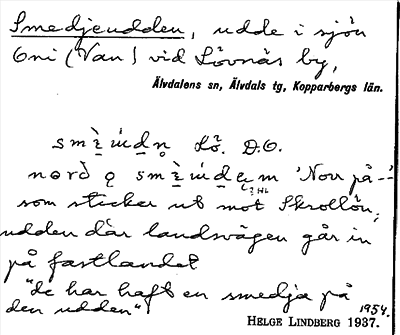 Smedjeudden, udde i sjön
(Van) vid Lövnäs by,
Älvdalens sn, Älvdals tg, Kopparbergs län.
Lö. D.O.
'Norr på --'
som sticker ut mot Skrollön,
udden där landsvägen går in
på fastlandet
"de har haft en smedja på
den udden"
1954.
HELGE LINDBERG 1937.